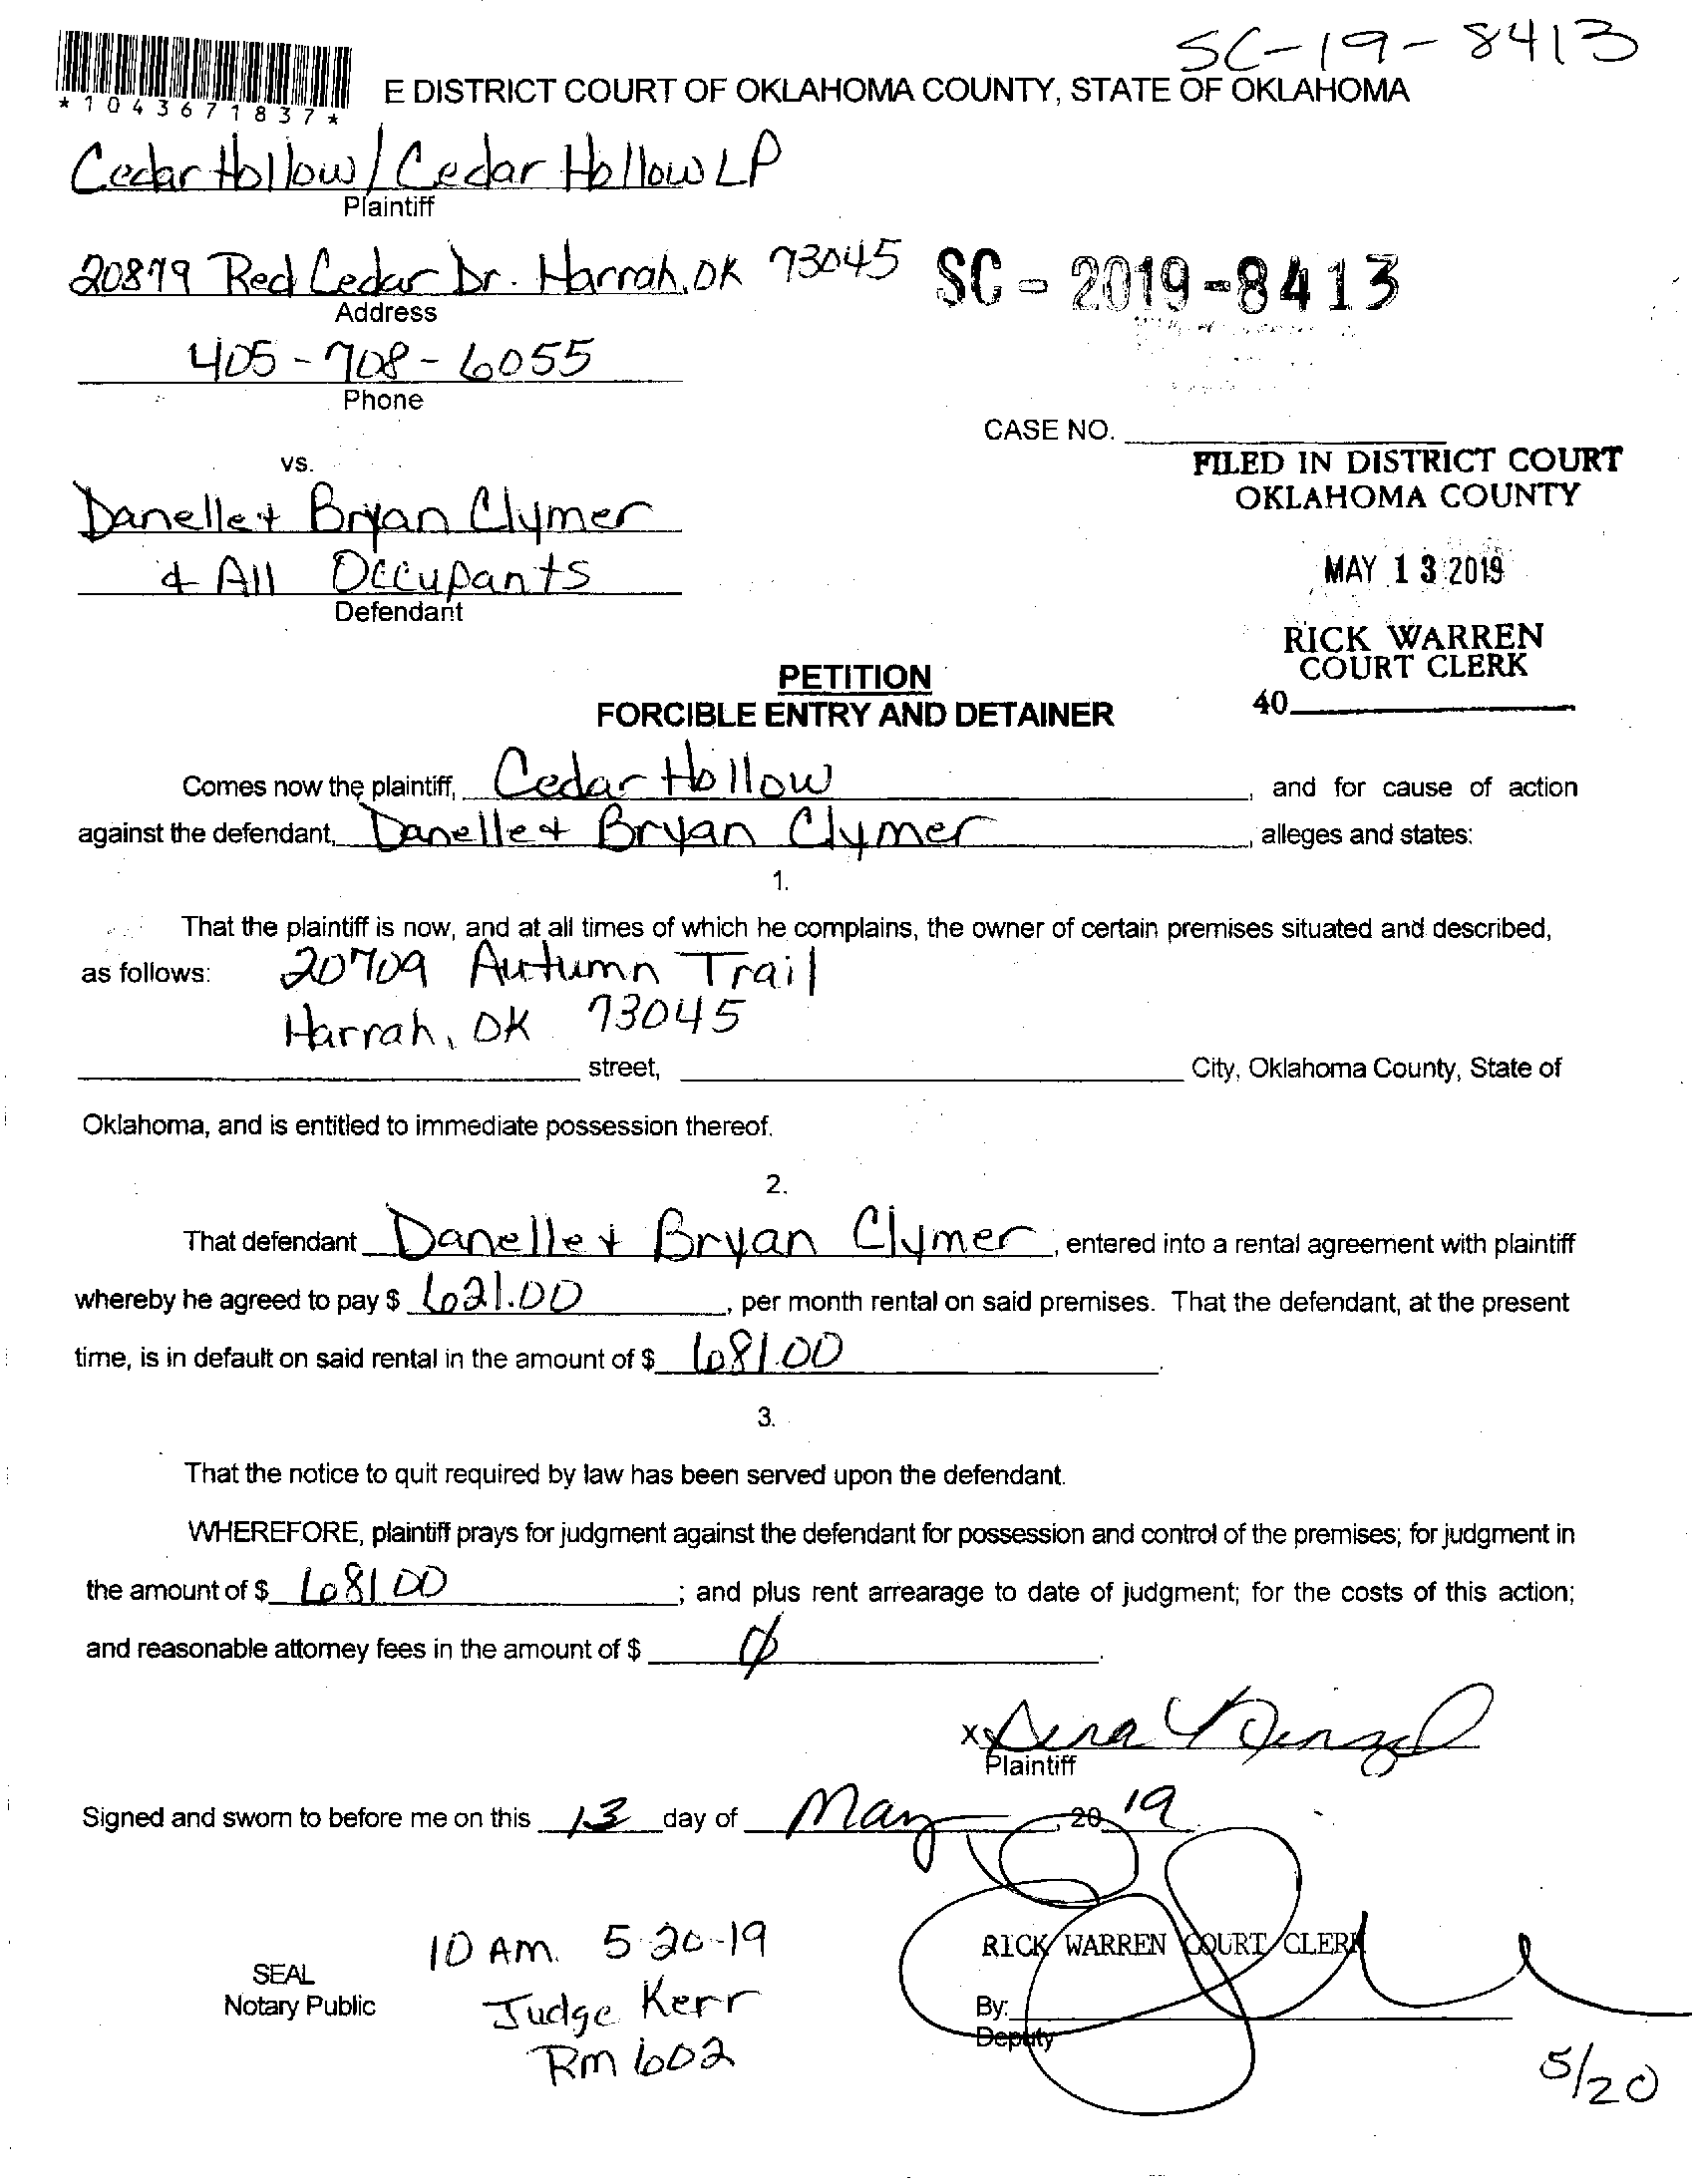 SC-19-8413
*1043671837*
E DISTRICT COURT OF OKLAHOMA COUNTY, STATE OF OKLAHOMA
Cedar Hollow / Cedar Hollow LP
Plaintiff
20879 Red Cedar Dr. Harrah, OK 73045
SC - 2019 - 8413
Address
405-708-6055
Phone
CASE NO.
vs.
FILED IN DISTRICT COURT
OKLAHOMA COUNTY
Danelle + Bryan Clymer
& All Occupants
Defendant
MAY 13 2019
RICK WARREN
COURT CLERK
40
PETITION
FORCIBLE ENTRY AND DETAINER
Comes now the plaintiff, Cedar Hollow, and for cause of action
against the defendant, Danelle + Bryan Clymer, alleges and states:
1.
That the plaintiff is now, and at all times of which he complains, the owner of certain premises situated and described,
as follows: 20709 Autumn Trail
Harrah, OK 73045
street, City, Oklahoma County, State of
Oklahoma, and is entitled to immediate possession thereof.
2.
That defendant Danelle + Bryan Clymer, entered into a rental agreement with plaintiff
whereby he agreed to pay $ 621.00, per month rental on said premises. That the defendant, at the present
time, is in default on said rental in the amount of $ 681.00.
3.
That the notice to quit required by law has been served upon the defendant.
WHEREFORE, plaintiff prays for judgment against the defendant for possession and control of the premises; for judgment in
the amount of $ 681 00; and plus rent arrearage to date of judgment; for the costs of this action;
and reasonable attorney fees in the amount of $ ∅.
X
Plaintiff
Signed and sworn to before me on this 13 day of May, 20 19
10 AM. 5-20-19
RICK WARREN COURT CLERK
SEAL
Notary Public
Judge Kerr
By:
Deputy
Rm 602
5/20